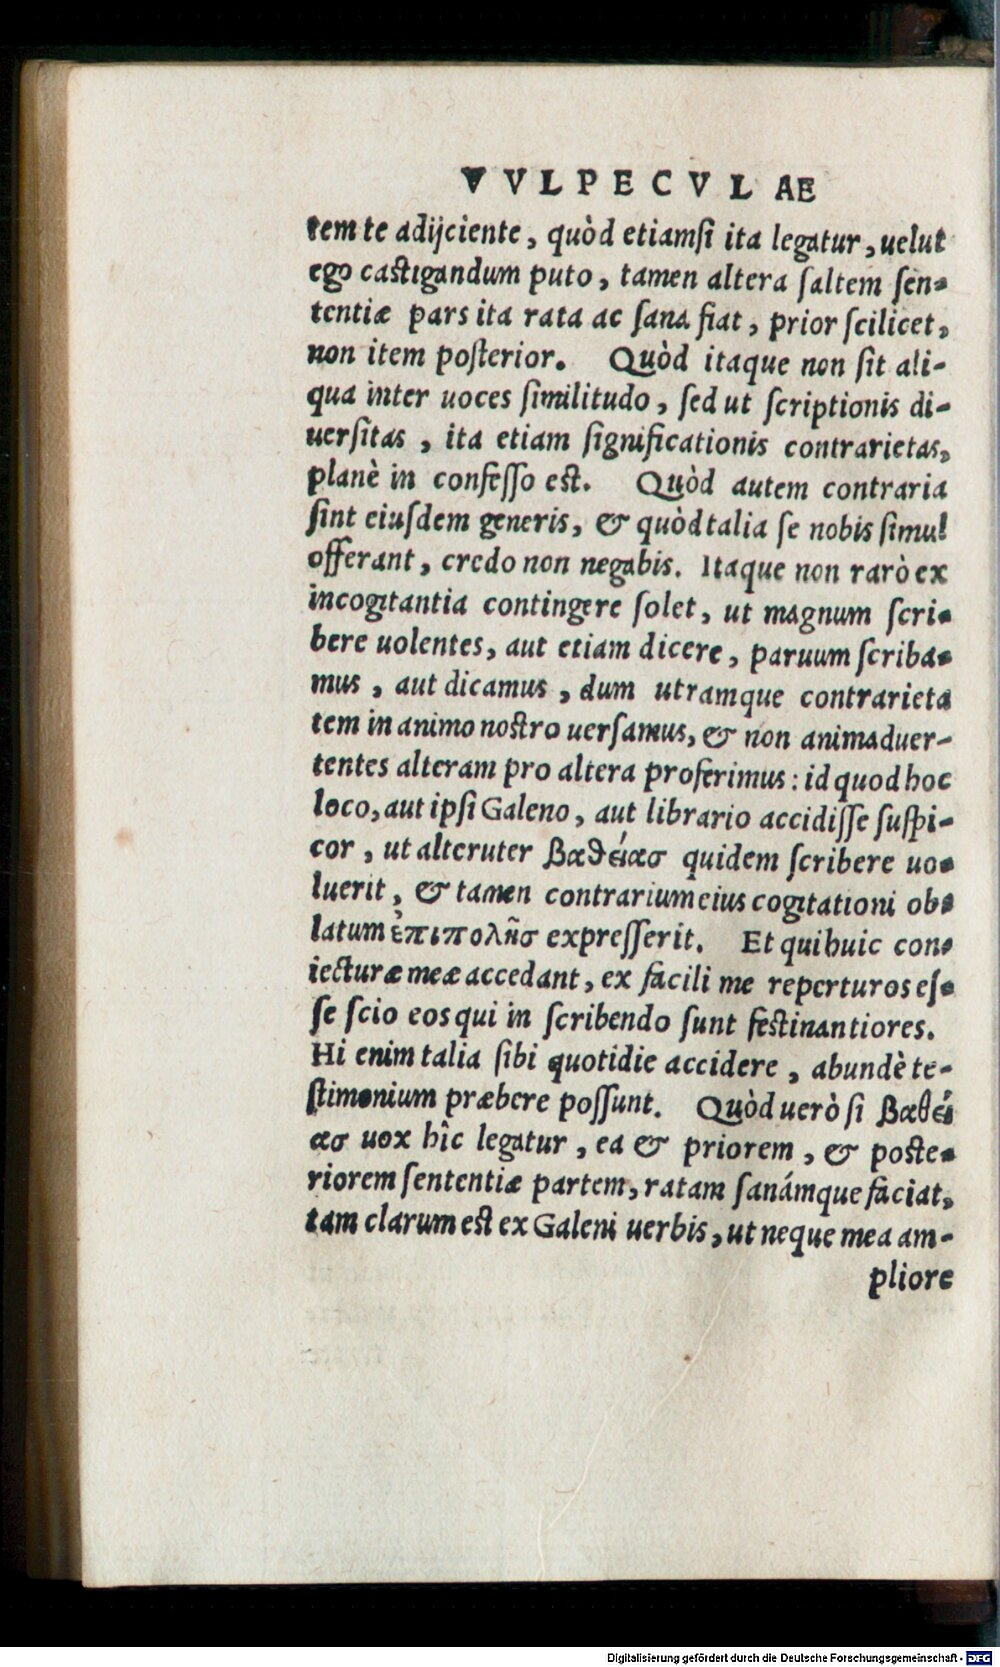 VVLPECVLAE
tem te adijciente, quòd etiamsi ita legatur, uelut
ego castigandum puto, tamen altera saltem sen-
tentiæ pars ita rata ac sana fiat, prior scilicet,
non item posterior. Quòd itaque non sit ali-
qua inter uoces similitudo, sed ut scriptionis di-
uersitas, ita etiam significationis contrarietas,
planè in confesso est. Quòd autem contraria
sint eiusdem generis, & quòd talia se nobis simul
offerant, credo non negabis. Itaque non rarò ex
incogitantia contingere solet, ut magnum scri-
bere uolentes, aut etiam dicere, paruum scriba-
mus, aut dicamus, dum utramque contrarieta
tem in animo nostro uersamus, & non animaduer-
tentes alteram pro altera proferimus: id quod hoc
loco, aut ipsi Galeno, aut librario accidisse suspi-
cor, ut alteruter βαθείασ quidem scribere uo-
luerit, & tamen contrarium eius cogitationi ob-
latum ἐπιπολῆσ expresserit. Et qui huic con-
iecturæ meæ accedant, ex facili me reperturos es-
se scio eos qui in scribendo sunt festinantiores.
Hi enim talia sibi quotidie accidere, abundè te-
stimonium præbere possunt. Quòd uerò si βαθεί
ασ uox hîc legatur, ea & priorem, & poste-
riorem sententiæ partem, ratam sanámque faciat,
tam clarum est ex Galeni uerbis, ut neque mea am-
pliore
Digitalisierung gefördert durch die Deutsche Forschungsgemeinschaft - DFG